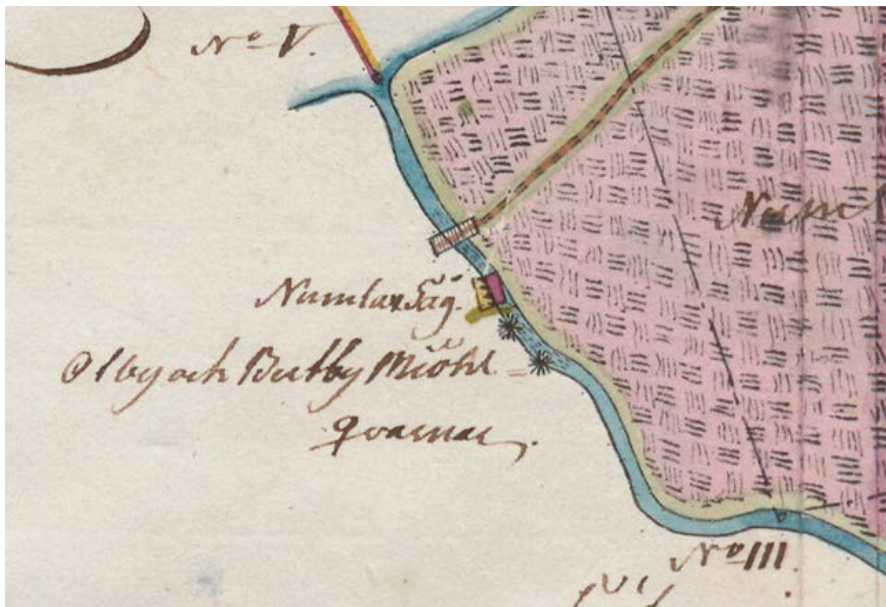 No V.
Numlax Såg.
Olby och Butby Miöhl
qvarnar.
Numl
No III.